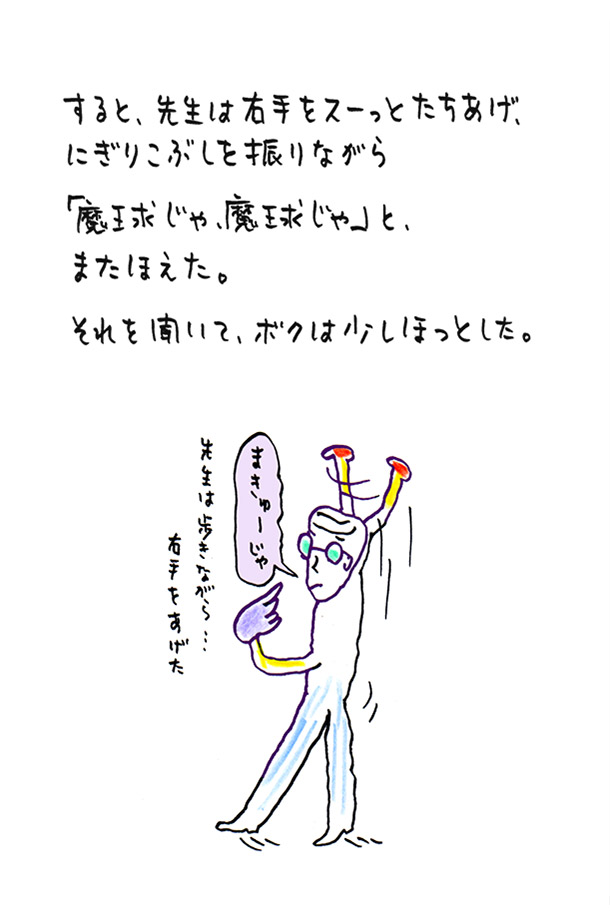 すると、先生は右手をスーっとたちあげ、
にぎりこぶしを振りながら
「魔球じゃ、魔球じゃ」と、
またほえた。
それを聞いて、ボクは少しほっとした。
まきゅーじゃ
先生は歩きながら…
右手をあげた